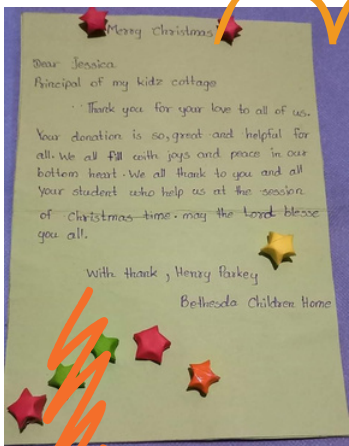 Merry Christmas
Dear Jessica
Principal of my kidz cottage
Thank you for your love to all of us.
Your donation is so, great and helpful for
all. We all fill with joys and peace in our
bottom heart. We all thank to you and all
your student who help us at the session
of Christmas time. may the Lord blesse
you all.
With thank, Henry Parkey
Bethesda Children Home